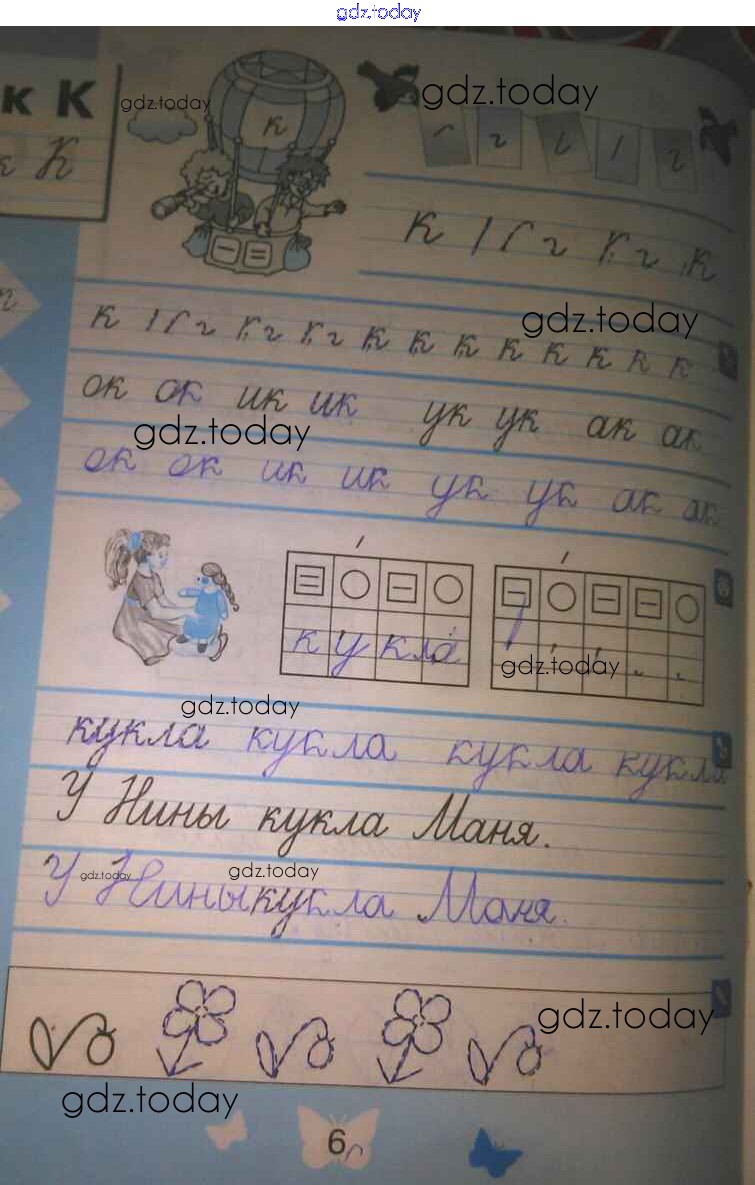 gdz.today
к К
К
к
gdz.today
gdz.today
к
к
gdz.today
к к к к к к к к
ок ок ик ик ук ук ак ак
gdz.today
ок ок ик ик ук ук ак ак
кукла
gdz.today
gdz.today
кукла кукла кукла кукла
У Нины кукла Маня.
gdz.today
gdz.today
У Нины кукла Маня.
gdz.today
gdz.today
6